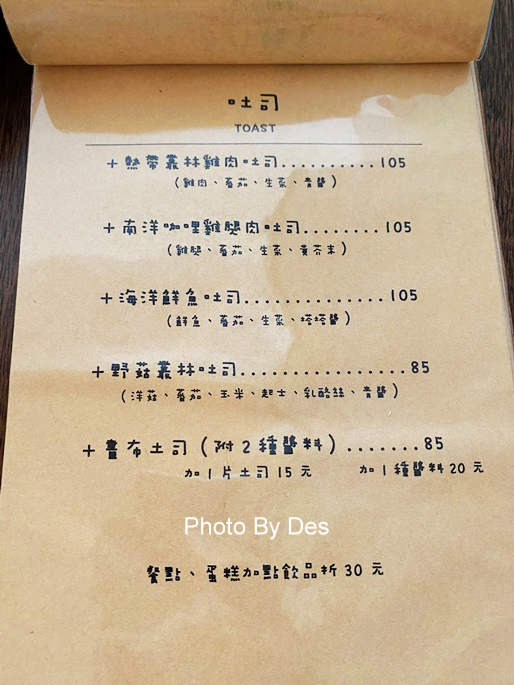 吐司
TOAST
+熱帶叢林雞肉吐司..........105
(雞肉、番茄、生菜、青醬)
+南洋咖哩雞腿肉吐司........105
(雞腿、番茄、生菜、黃芥末)
+海洋鮮魚吐司..............105
(鮮魚、番茄、生菜、塔塔醬)
+野菇叢林吐司................85
(洋菇、番茄、玉米、起士、乳酪絲、青醬)
+畫布土司(附2種醬料).......85
加1片土司15元 加1種醬料20元
Photo By Des
餐點、蛋糕加點飲品折30元